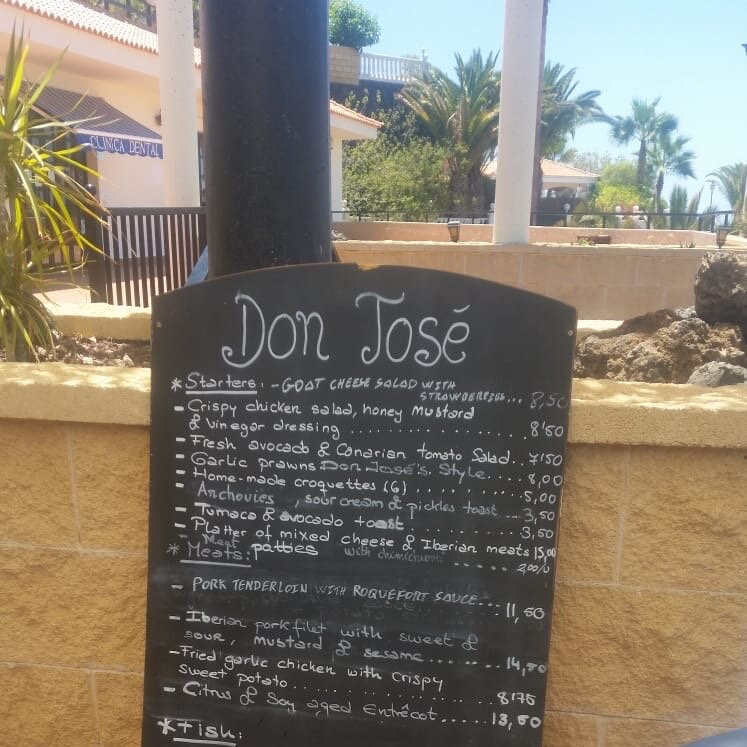 CLINICA DENTAL
Don José
* Starters: - GOAT CHEESE SALAD WITH
STRAWBERRIES... 8,50
- Crispy chicken salad, honey mustard
& Vinegar dressing ............ 8'50
- Fresh avocado & Canarian tomato Salad.. 7'50
- Garlic prawns Don José's Style..... 8,00
- Home-made croquettes (6) .......... 5,00
Anchovies, sour cream & pickles toast... 3,50
- Tumaca & avocado toast............ 3,50
- Platter of mixed cheese & Iberian meats 15,00
Meat patties with chimichurri ....... 2,00/u
* Meats:
- PORK TENDERLOIN WITH ROQUEFORT SAUCE... 11,50
- Iberian pork filet with sweet &
sour, mustard & sesame......... 14,50
- Fried garlic chicken with crispy
sweet potato.................. 8'75
- Citrus & Soy aged Entrêcot..... 13,50
* Fish: